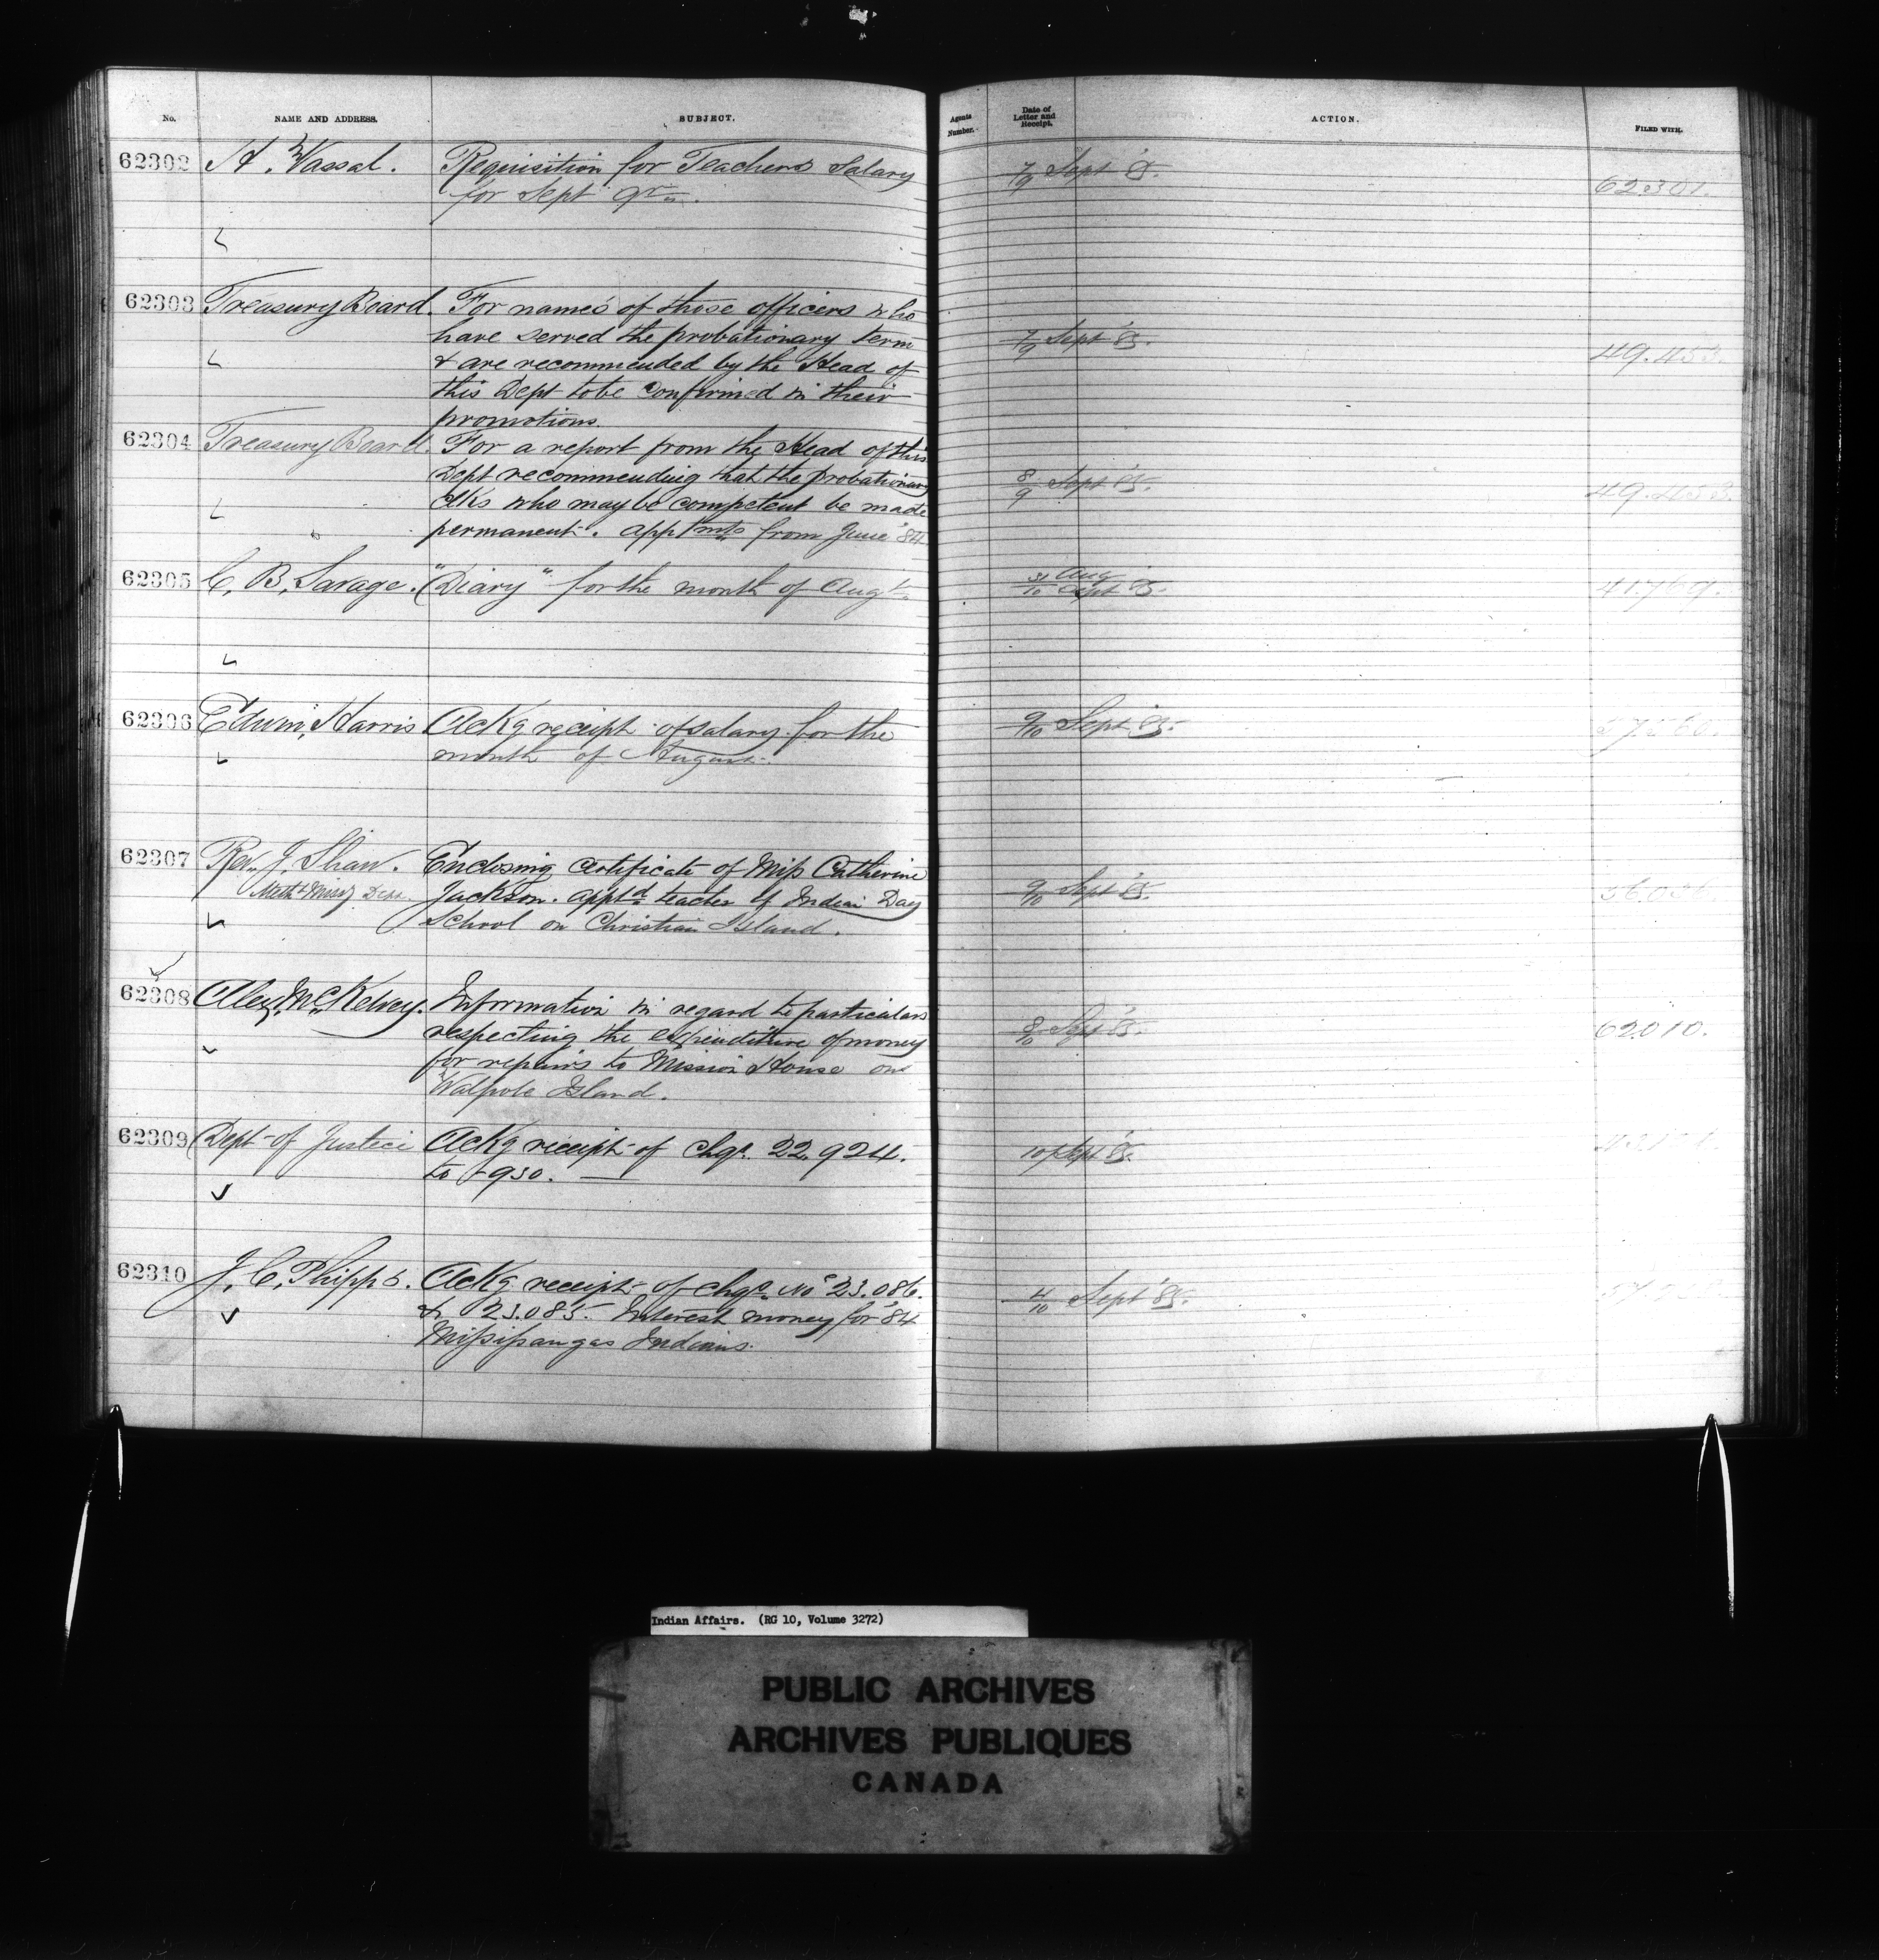 No. NAME AND ADDRESS. SUBJECT. Agents Number. Date of Letter and Receipt. ACTION. FILED WITH.
62302 H. Vassal. Requisition for Teachers Salary 7/9 Sept 85. 62.301.
for Sept qr.
62303 Treasury Board. For names of those officers who
have served the probationary term 7/9 Sept 85. 49.453.
& are recommended by the Head of
this Dept to be confirmed in their
promotions.
62304 Treasury Board. For a report from the Head of this
Dept recommending that the probationary 8/9 Sept 85. 49.453.
Clks who may be competent be made
permanent. appmts from June '84
62305 C. B. Savage. "Diary" for the month of Augt. 31/10 Aug Sept 85. 41.769.
62306 Edwin Harris Ackg receipt of salary for the 9/10 Sept 85.
month of August.
62307 Rev. J. Shaw. Enclosing Certificate of Miss Catherine
Meth Missy Jackson. apptd teacher of Indian Day 9/10 Sept 85.
School on Christian Island.
62308 Alex. McKelvey. Information in regard to particulars
respecting the expenditure of money 8/10 Sept 85. 62010.
for repairs to Mission House on
Walpole Island.
62309 Dept of Justice Ackg receipt of chqs. 22.924. 10 Sept 85.
to 930.
62310 J. C. Phipps. Ackg receipt of chqs. No 23.086. 4/10 Sept '85.
& 23.085. Interest money for '84
Missisangas Indians.
Indian Affairs. (RG 10, Volume 3272)
PUBLIC ARCHIVES
ARCHIVES PUBLIQUES
CANADA